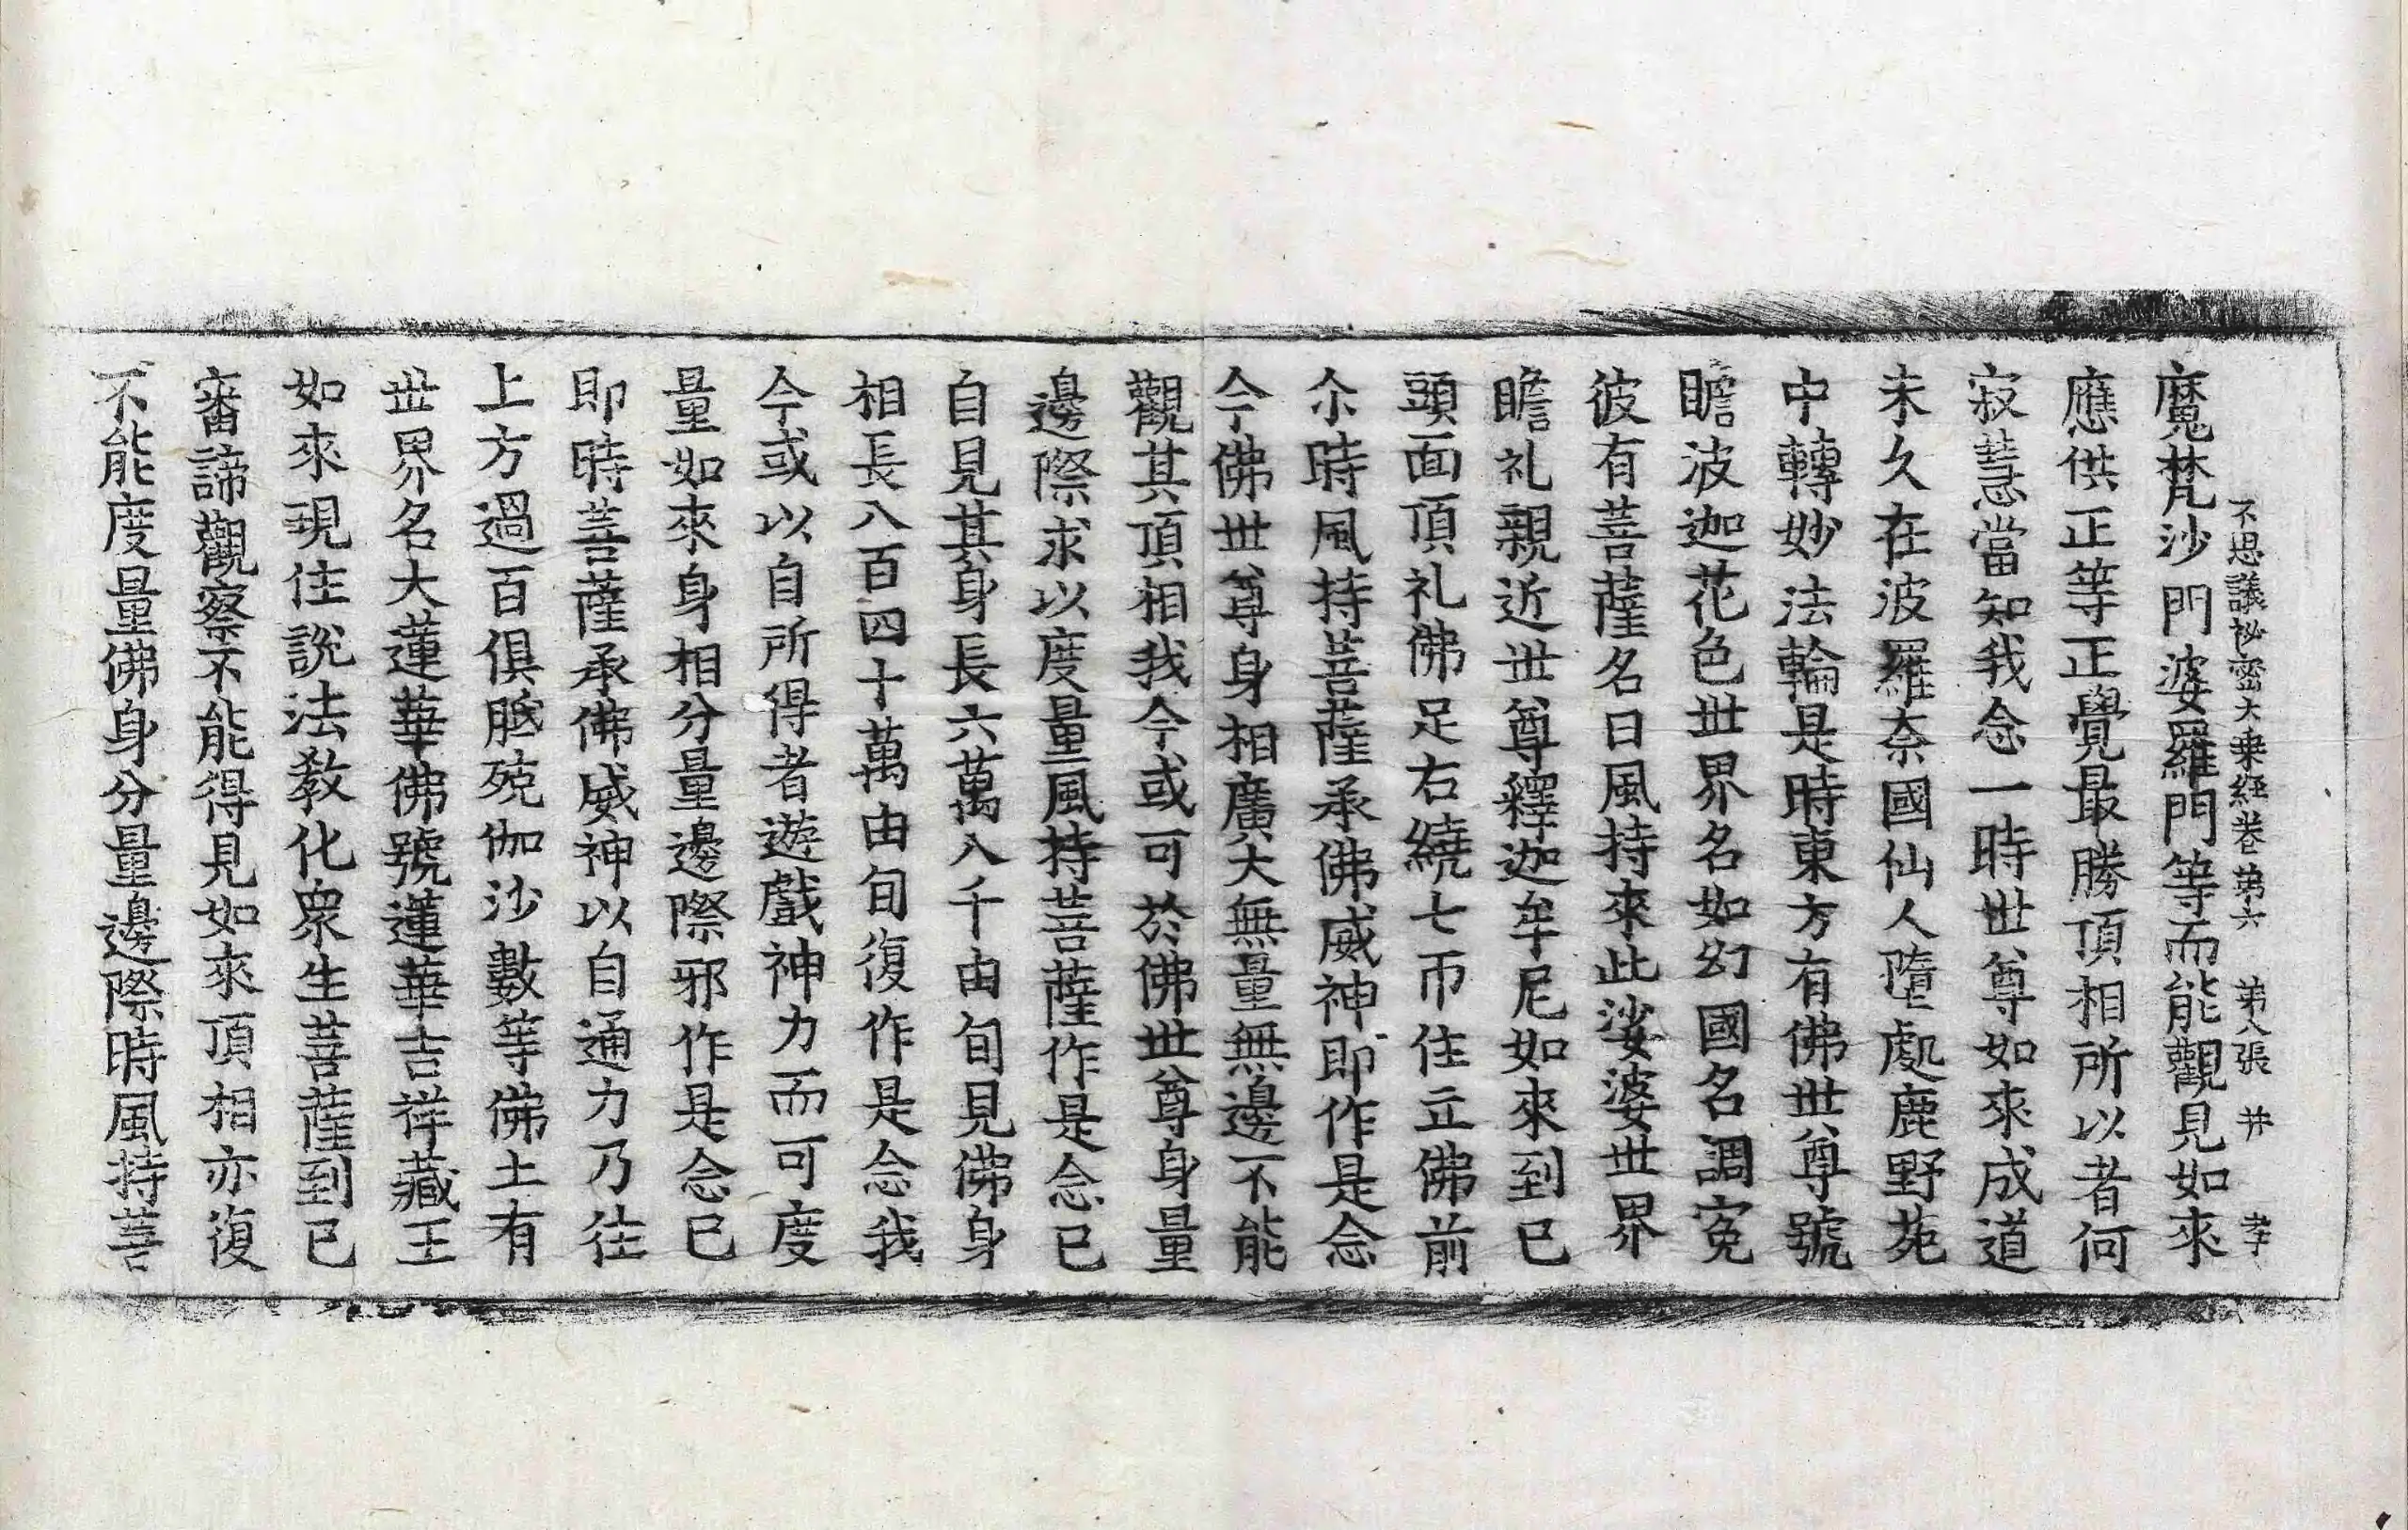 不思議祕密大乗経巻第六　第八張　井　孝
魔梵沙門婆羅門等而能觀見如來
應供正等正覺最勝頂相所以者何
寂慧當知我念一時世尊如來成道
未久在波羅奈國仙人墮處鹿野苑
中轉妙法輪是時東方有佛世尊號
瞻波迦花色世界名如幻國名調寃
彼有菩薩名曰風持來此娑婆世界
瞻礼親近世尊釋迦牟尼如來到已
頭面頂礼佛足右繞七帀住立佛前
尒時風持菩薩承佛威神即作是念
今佛世尊身相廣大無量無邊不能
觀其頂相我今或可於佛世尊身量
邊際求以度量風持菩薩作是念已
自見其身長六萬八千由旬見佛身
相長八百四十萬由旬復作是念我
今或以自所得者遊戲神力而可度
量如來身相分量邊際邪作是念已
即時菩薩承佛威神以自通力乃往
上方過百俱胝殑伽沙數等佛土有
世界名大蓮華佛號蓮華吉祥藏王
如來現住說法教化衆生菩薩到已
審諦觀察不能得見如來頂相亦復
不能度量佛身分量邊際時風持菩